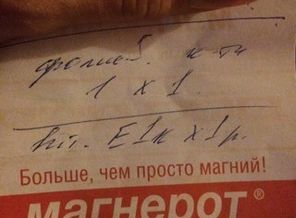 фолиев. к-та
1 x 1
Vit. E 1к x 1 р.
Больше, чем просто магний!
магнерот®